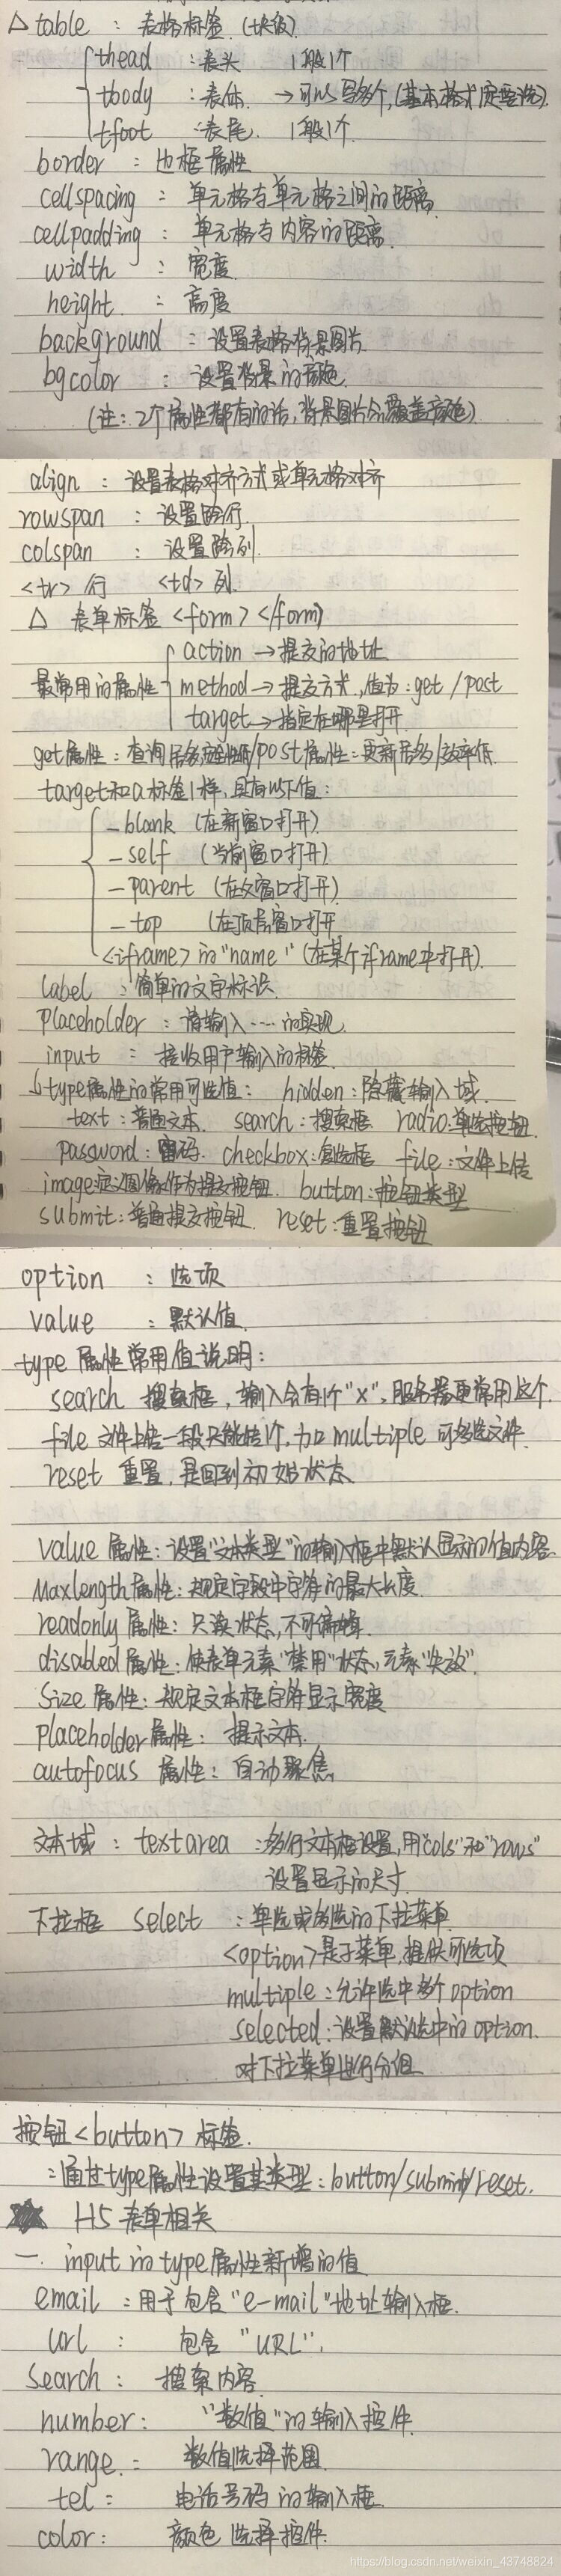 △ table : 表格标签.(块级)
thead : 表头 1般1个
tbody : 表体. →可以写多个,(基本格式
tfoot 表尾. 1般1个.
border : 边框属性
cellspacing : 单元格与单元格之间的距离
cellpadding : 单元格与内容的距离.
width : 宽度.
height. : 高度
background : 设置表格背景图片.
bgcolor : 设置背景的颜色.
(注: 2个属性都有的话,背景图片会覆盖颜色)
align : 设置表格对齐方式或单元格对齐
rowspan : 设置跨行.
colspan : 设置跨列.
<tr> 行 <td> 列.
△ 表单标签 <form> </form>
action → 提交的地址
最常用的属性 method → 提交方式,值为:get / post
target → 指定在哪里打开
get属性: 查询居多 /post属性: 更新居多/效率低.
target和a标签1样,具有以下值:
_blank (在新窗口打开)
_self (当前窗口打开)
_parent (在父窗口打开)
_top (在顶层窗口打开
<iframe> 的"name" (在某个iframe中打开).
label : 简单的文字标识.
placeholder : 请输入……的实现.
input : 接收用户输入的标签.
↓type属性的常用可选值: hidden:隐藏输入域.
text:普通文本. search:搜索框 radio:单选按钮.
password:密码. checkbox:复选框 file:文件上传
image:定义图像作为提交按钮. button:按钮类型
submit:普通提交按钮. reset:重置按钮
option : 选项
value : 默认值.
type 属性常用值说明:
search 搜索框,输入会有1个"x",服务器更常用这个.
file 文件上传一般只能传1个,加口multiple 可多选文件.
reset 重置,是回到初始状态.
value 属性:设置"文本类型"的输入框中默认显示的值内容.
Maxlength属性:规定字段中字符的最大长度.
readonly 属性: 只读状态,不可编辑.
disabled属性:使表单元素"禁用"状态,元素"失效".
Size 属性: 规定文本框字符显示宽度
placeholder属性: 提示文本.
autofocus 属性: 自动聚焦.
文本域 : textarea :多行文本框设置,用"cols"和"rows"
设置显示的尺寸.
下拉框 select : 单选或多选的下拉菜单.
<option>是子菜单,提供可选项
multiple : 允许选中多个option
selected:设置默认选中的option.
对下拉菜单进行分组
按钮<button> 标签.
:通过type属性设置其类型: button/submit/reset.
★ H5 表单相关
一. input的type属性新增的值
email : 用于包含"e-mail"地址输入框.
url : 包含 "URL".
Search : 搜索内容.
number: "数值"的输入控件.
range : 数值选择范围.
tel : 电话号码的输入框.
color: 颜色选择控件.
https://blog.csdn.net/weixin_43748824